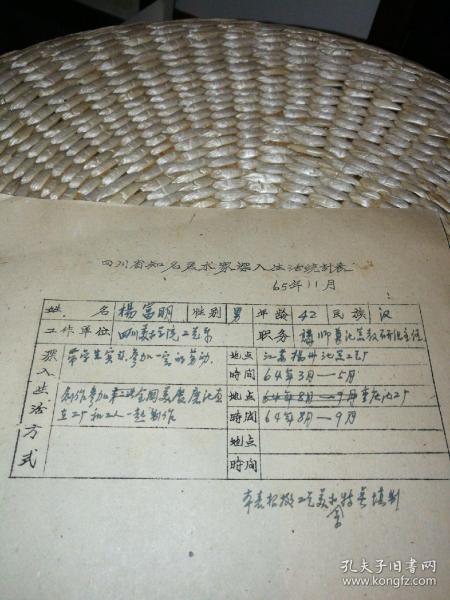 四川省知名美术家深入生活统计表
65年11月
姓名 楊富明 性别 男 年龄 42 民族 汉
工作单位 四川美术学院工艺系 职务 講师兼漆美教研组主任
深入生活方式
带学生实习,参加一定的劳动. 地点 江苏揚州漆器工厂
時间 64年3月—5月
創作参加第二次全国美展原漆画 地点 64年8月—9月 重庆漆工厂
在工厂和工人一起製作 時间 64年8月—9月
地点
時间
本表根据工艺美术特点填制
孔夫子旧书网
www.kongfz.com